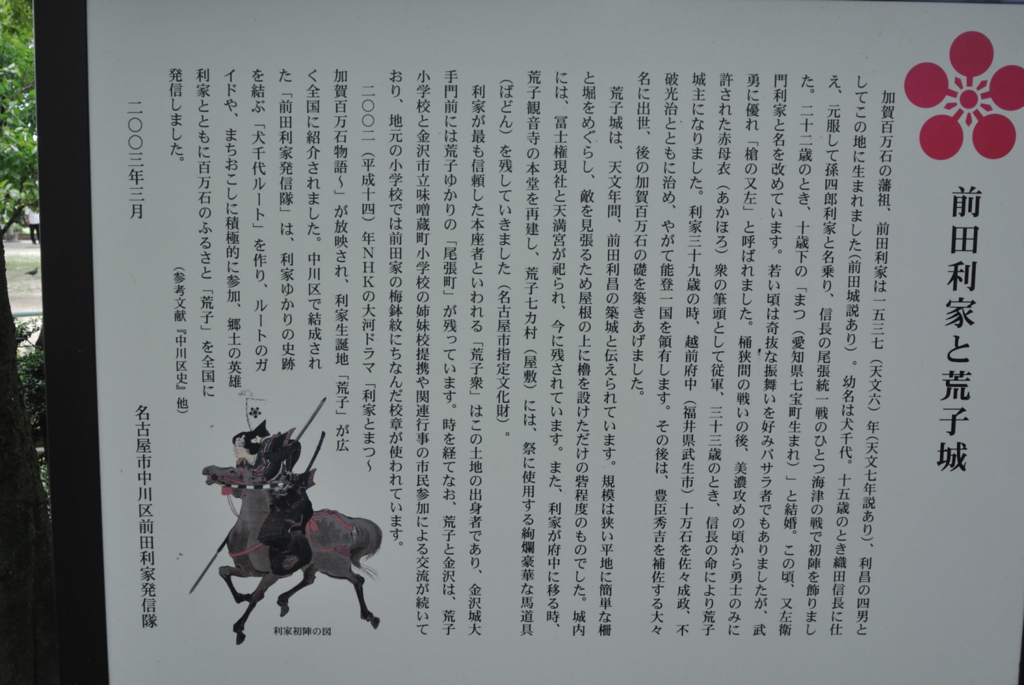 前田利家と荒子城
加賀百万石の藩祖、前田利家は一五三七（天文六）年（天文七年説あり）、利昌の四男と
してこの地に生まれました（前田城説あり）。幼名は犬千代。十五歳のとき織田信長に仕
え、元服して孫四郎利家と名乗り、信長の尾張統一戦のひとつ海津の戦で初陣を飾りまし
た。二十二歳のとき、十歳下の「まつ（愛知県七宝町生まれ）」と結婚。この頃、又左衛
門利家と名を改めています。若い頃は奇抜な振舞いを好みバサラ者でもありましたが、武
勇に優れ「槍の又左」と呼ばれました。桶狭間の戦いの後、美濃攻めの頃から勇士のみに
許された赤母衣（あかほろ）衆の筆頭として従軍、三十三歳のとき、信長の命により荒子
城主になりました。利家三十九歳の時、越前府中（福井県武生市）十万石を佐々成政、不
破光治とともに治め、やがて能登一国を領有します。その後は、豊臣秀吉を補佐する大々
名に出世、後の加賀百万石の礎を築きあげました。
荒子城は、天文年間、前田利昌の築城と伝えられています。規模は狭い平地に簡単な柵
と堀をめぐらし、敵を見張るため屋根の上に櫓を設けただけの砦程度のものでした。城内
には、冨士権現社と天満宮が祀られ、今に残されています。また、利家が府中に移る時、
荒子観音寺の本堂を再建し、荒子七カ村（屋敷）には、祭に使用する絢爛豪華な馬道具
（ばどん）を残していきました（名古屋市指定文化財）。
利家が最も信頼した本座者といわれる「荒子衆」はこの土地の出身者であり、金沢城大
手門前には荒子ゆかりの「尾張町」が残っています。時を経てなお、荒子と金沢は、荒子
小学校と金沢市立味噌蔵町小学校の姉妹校提携や関連行事の市民参加による交流が続いて
おり、地元の小学校では前田家の梅鉢紋にちなんだ校章が使われています。
二〇〇二（平成十四）年NHKの大河ドラマ「利家とまつ〜
加賀百万石物語〜」が放映され、利家生誕地「荒子」が広
く全国に紹介されました。中川区で結成され
た「前田利家発信隊」は、利家ゆかりの史跡
を結ぶ「犬千代ルート」を作り、ルートのガ
イドや、まちおこしに積極的に参加、郷土の英雄
利家とともに百万石のふるさと「荒子」を全国に
発信しました。
（参考文献『中川区史』他）
二〇〇三年三月
名古屋市中川区前田利家発信隊
利家初陣の図